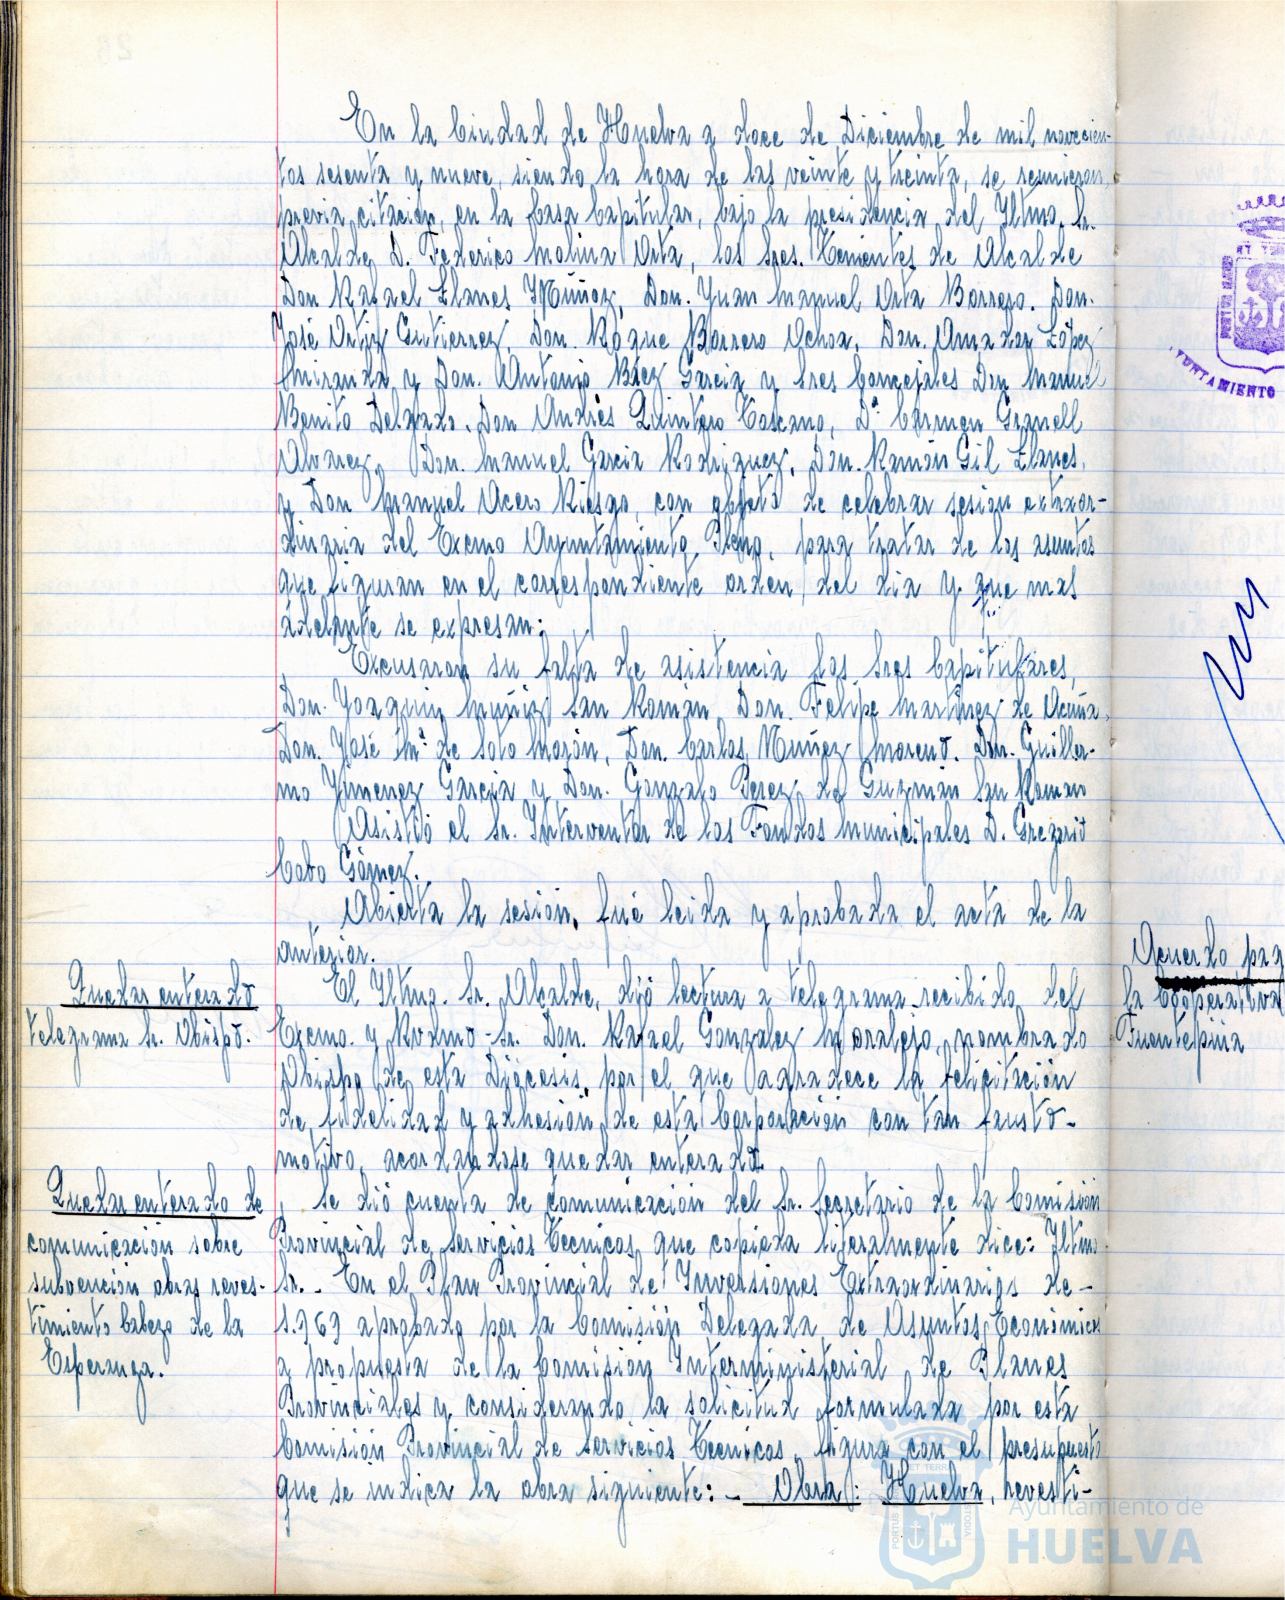 En la Ciudad de Huelva a doce de Diciembre de mil novecien-
tos sesenta y nueve, siendo la hora de las veinte y treinta, se reunieron,
previa citación, en la Casa Capitular, bajo la presidencia del Iltmo. Sr.
Alcalde, D. Federico Molina Orta, los Sres. Tenientes de Alcalde
Don Rafael Llanes Muñoz, Don. Juan Manuel Orta Borrero. Don.
José Ortiz Gutierrez, Don. Roque Borrero Ochoa, Don. Amador López
Miranda, y Don. Antonio Báez Garcia y Sres Concejales Don Manuel
Benito Delgado. Don Andrés Quintero Toscano, Dª. Carmen Granell
Alvarez, Don. Manuel Garcia Rodriguez, Don. Ramón Gil Llanes,
y Don Manuel Acero Riesgo, con objeto de celebrar sesión extraor-
dinaria del Excmo Ayuntamiento Pleno, para tratar de los asuntos
que figuran en el correspondiente orden del dia y que mas
adelante se expresan:
Excusaron su falta de asistencia los Sres Capitulares,
Don. Joaquin Muñiz San Román, Don. Felipe Martinez de Acuña,
Don. José Mª de Soto Morón, Don. Carlos Muñoz Moreno. Don. Guiller-
mo Jimenez Garcia y Don. Gonzalo Perez de Guzmán San Roman
Asistió el Sr. Interventor de los Fondos Municipales D. Gregorio
Cobo Gómez.
Abierta la sesión, fué leida y aprobada el acta de la
anterior.
Quedar enterado
telegrama Sr. Obispo.
El Iltmo. Sr. Alcalde, dió lectura a telegrama recibido del
Excmo. y Rvdmo Sr. Don. Rafael Gonzalez Moralejo, nombrado
Obispo de esta Diócesis, por el que agradece la felicitación
de fidelidad y adhesión de esta Corporación con tan fausto-
motivo, acordandose quedar enterado.
Quedar enterado de
comunicación sobre
subvención obras reves-
timiento Cabezo de la
Esperanza.
Se dió cuenta de comunicación del Sr. Secretario de la Comisión
Provincial de Servicios Tecnicos, que copiada literalmente dice: Iltmo.
Sr. - En el Plan Provincial de Inversiones Extraordinarias de-
1.969 aprobado por la Comisión Delegada de Asuntos Económicos
a propuesta de la Comisión Interministerial de Planes
Provinciales y considerando la solicitud formulada por esta
Comisión Provincial de Servicios Tecnicos, figura con el presupuesto
que se indica la obra siguiente: - Obra: Huelva, revesti-
Acuerdo para
la Cooperativa
Fuentepiña
AYUNTAMIENTO
Ayuntamiento de
HUELVA